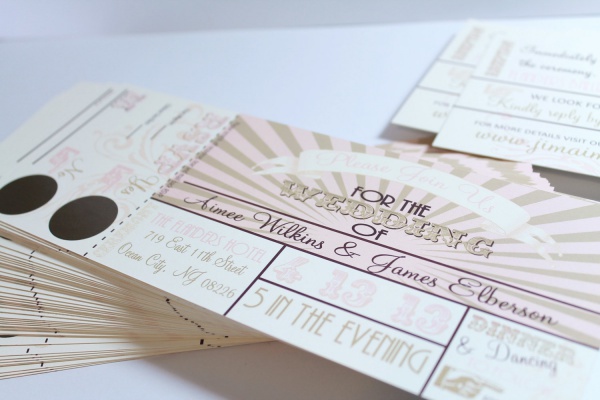 Please Join Us
FOR THE
WEDDING
OF
Aimee Wilkins & James Elberson
THE FLANDERS HOTEL
719 East 11th Street
Ocean City, NJ 08226
4 13 13
5 IN THE EVENING
DINNER
& Dancing
Yes
No
Immediately
the ceremony
WE LOOK FO
Kindly reply by
FOR MORE DETAILS VISIT O